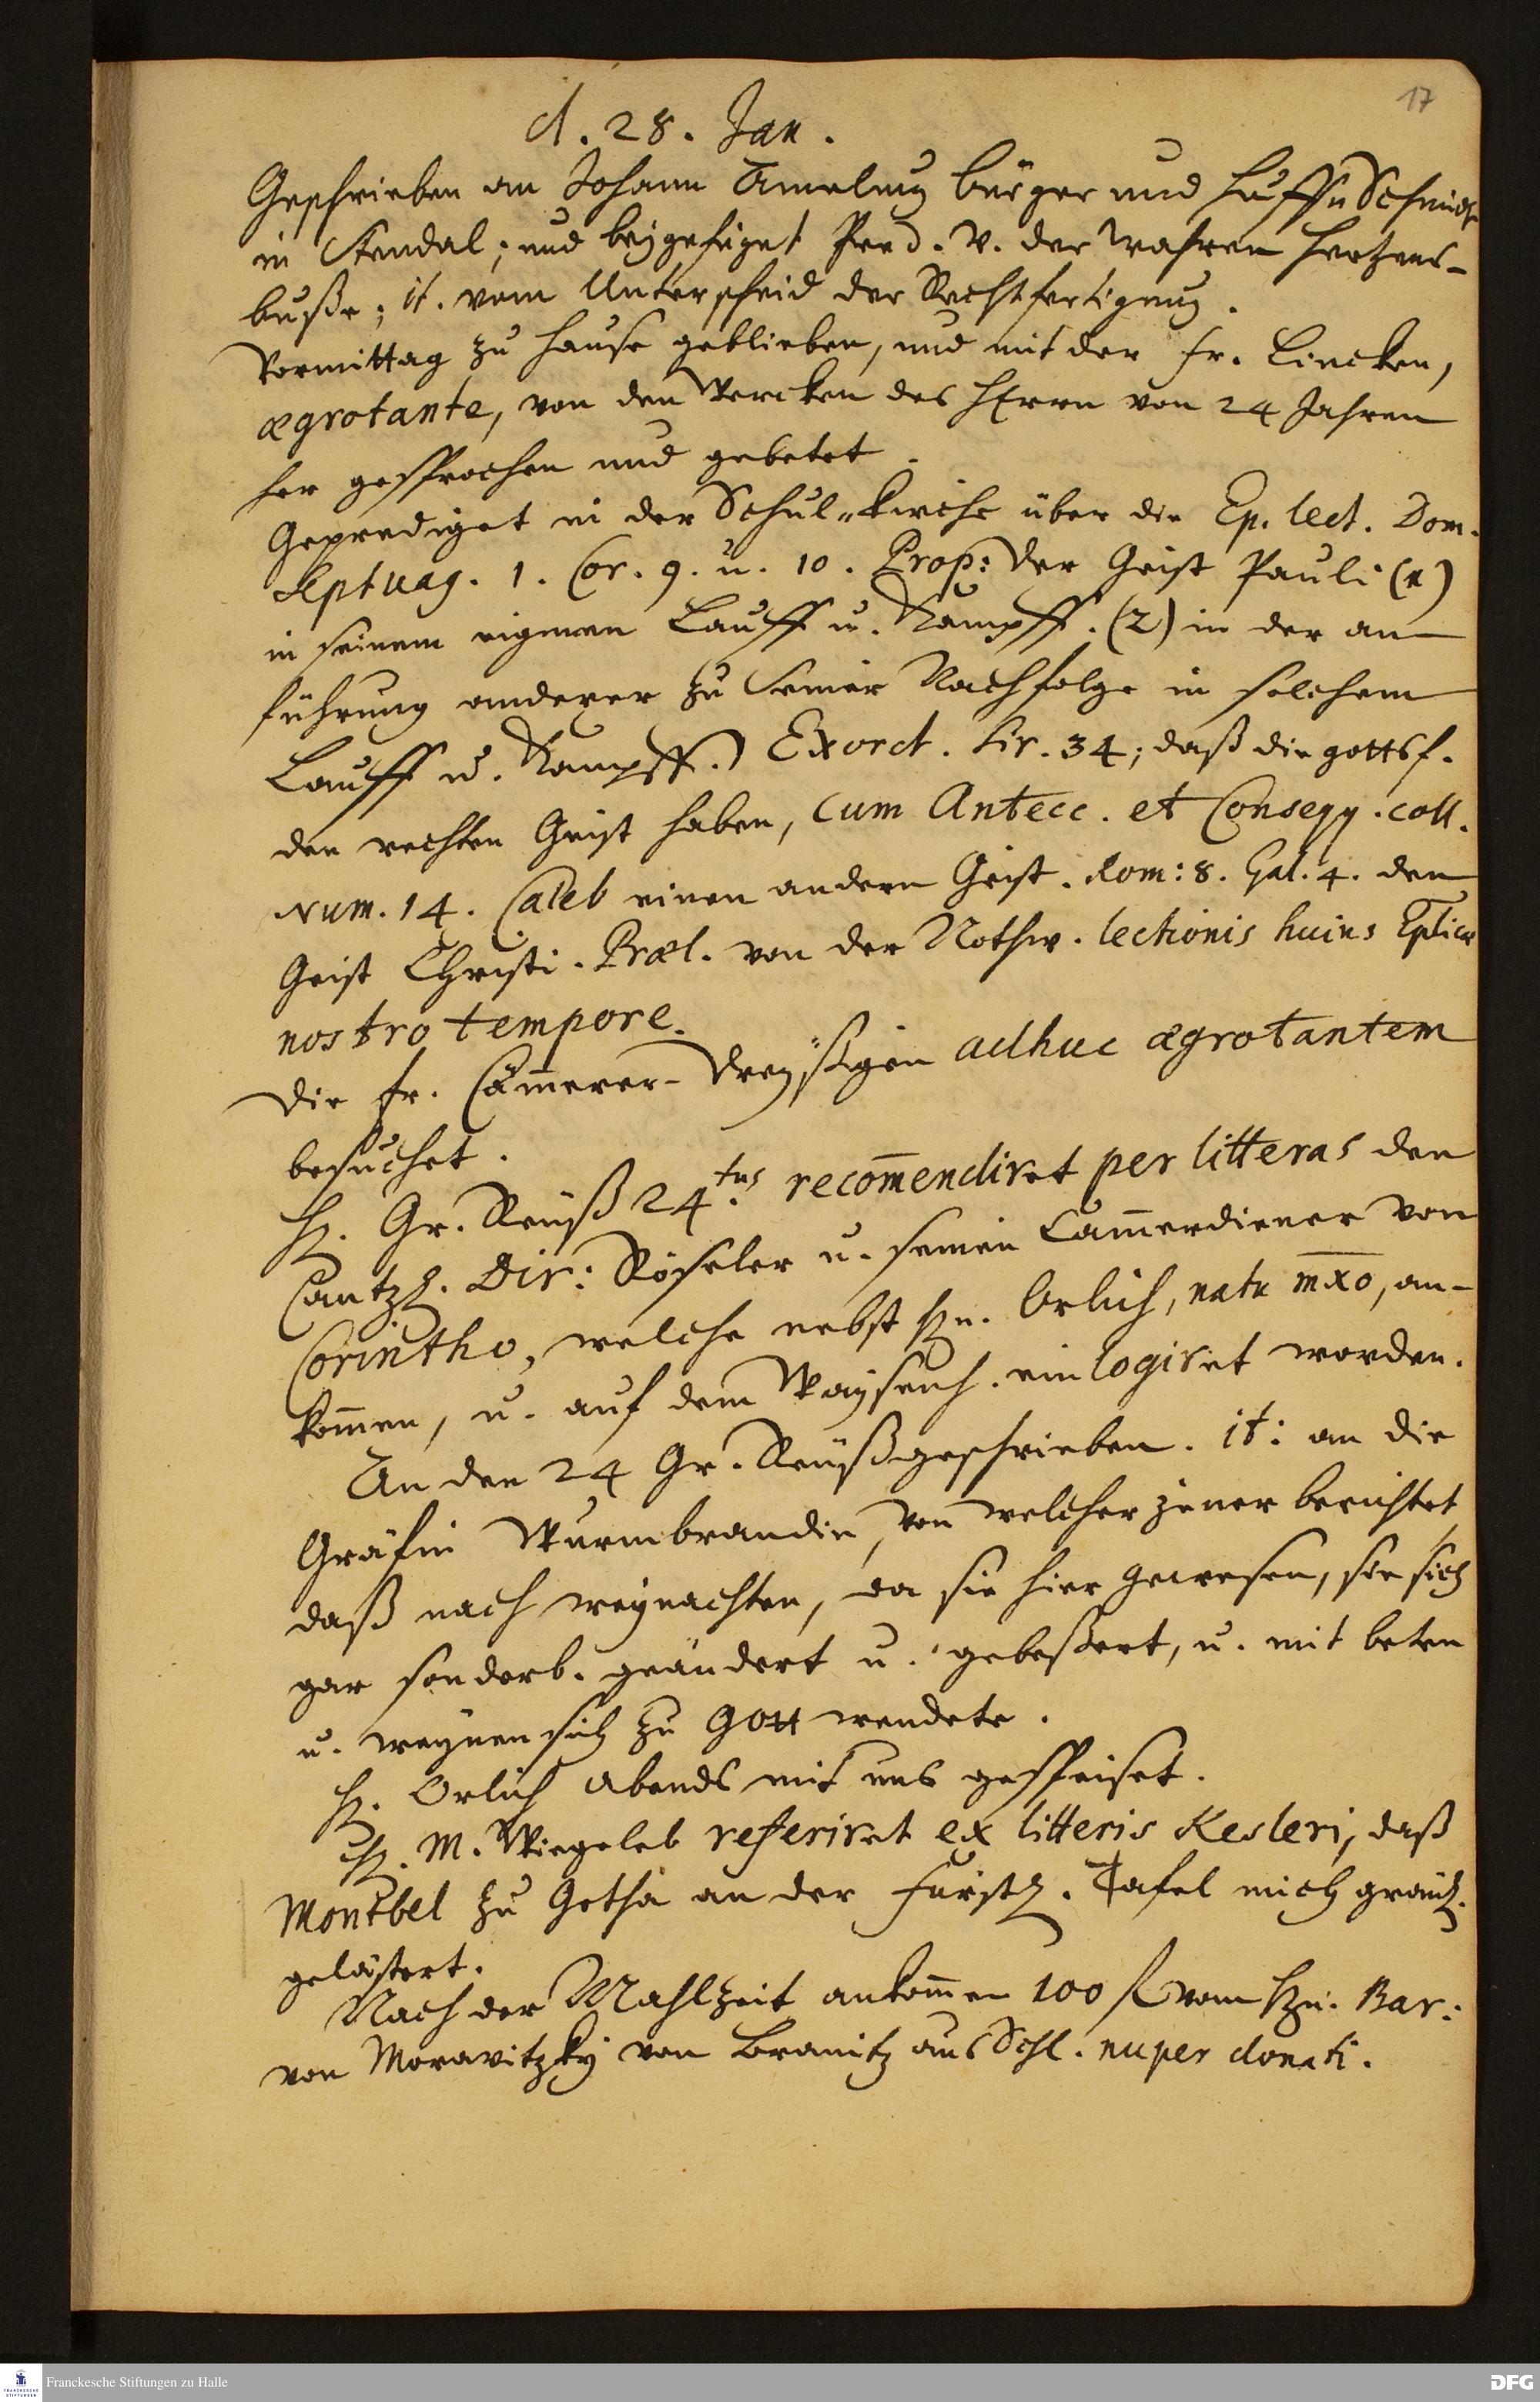 17
d. 28. Jan.
Geschrieben an Johann Amelung bürger und Huffschmidt
in Stendal; und beygefüget Pred. v. der wahren Hertzens-
buße; it. vom Unterscheid der Rechtfertigung.
Vormittag zu Hause geblieben, und mit der Fr. Lincken,
ægrotante, von den Wercken des HErrn von 24 Jahren
her gesprochen und gebetet.
Geprediget in der Schul-kirche über die Ep. lect. Dom.
Septuag. 1. Cor. 9. u. 10. Prop: der Geist Pauli (1)
in seinem eigenen Lauff u. Kampff. (2) in der an-
führung anderer zu seiner Nachfolge in solchem
Lauff u. Kampff.) Exord. Sir. 34; daß die gottsf.
den rechten Geist haben, cum Antecc. et Conseqq. coll.
Num. 14. Caleb einen andern Geist. Rom: 8. Gal. 4. den
Geist Christi. Præl. von der Nothw. lectionis huius Eplicæ
nostro tempore.
Die Fr. Cämmerer-Dreyßigin adhuc ægrotantem
besuchet.
H. Gr. Reuß 24.tus recom̄endiret per litteras den
Cantzl. Dir: Röseler u. seinen Cam̄erdiener von
Corintho, welche nebst Hn. Orlich, natu m̄x̄o, an-
kom̄en, u. auf dem Waysenh. einlogiret worden.
An den 24 Gr. Reuß geschrieben. it: an die
Gräfin Wurmbrandin, von welcher jener berichtet,
daß nach weynachten, da sie hier gewesen, sie sich
gar sonderb. geändert u. gebeßert, u. mit beten
u. weynen sich zu GOtt wendete.
H. Orlich abends mit uns gespeiset.
H. M. Wiegeleb referiret ex litteris Kesleri, daß
Monsbel zu Gotha an der Fürstl. Tafel mich greul.
gelästert.
Nach der Mahlzeit ankom̄en 100 fl vom Hn. Bar:
von Moravitzky von Branitz aus Schl. nuper donati.
Franckesche Stiftungen zu Halle
DFG